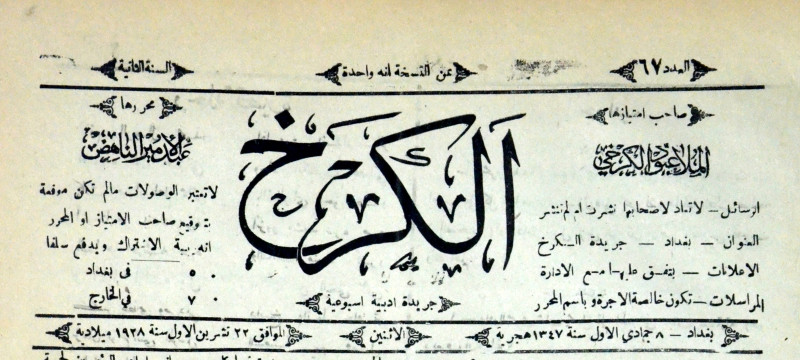 العدد ٦٧
ثمن النسخة انه واحدة
السنة الثانية
صاحب امتيازها
الملا عبود الكرخي
الرسائل — لا تعاد لاصحابها نشرت ام لم تنشر
العنوان — بغداد — جريدة الكرخ
الاعلانات — يتفق عليها مع الادارة
المراسلات — تكون خالصة الاجرة وباسم المحرر
الكرخ
جريدة ادبية اسبوعية
محررها
عبد الامير الناهض
لا تعتبر الوصولات مالم تكن موقعة
بتوقيع صاحب الامتياز او المحرر
انه ربية الاشتراك ويدفع سلفا
٥٠ في بغداد
٧٠ في الخارج
بغداد — ٨ جمادي الاول سنة ١٣٤٧ هجرية
الاثنين
الموافق ٢٢ تشرين الاول سنة ١٩٢٨ ميلادية